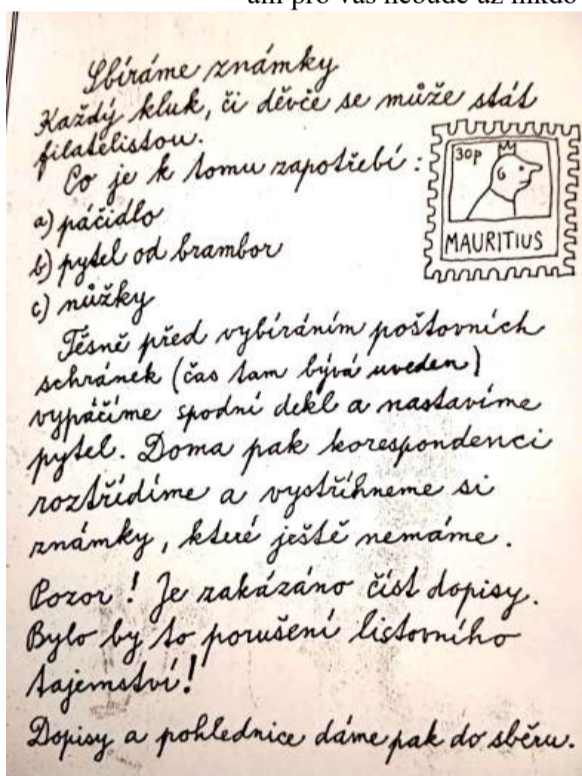 ani pro vás nebude až nikdo
Sbíráme známky
Každý kluk, či děvče se může stát
filatelistou.
Co je k tomu zapotřebí :
30p
MAURITIUS
a) páčidlo
b) pytel od brambor
c) nůžky
Těsně před vybíráním poštovních
schránek (čas tam bývá uveden)
vypáčíme spodní dekl a nastavíme
pytel. Doma pak korespondenci
roztřídíme a vystřihneme si
známky, které ještě nemáme.
Pozor! Je zakázáno číst dopisy.
Bylo by to porušení listovního
tajemství!
Dopisy a pohlednice dáme pak do sběru.